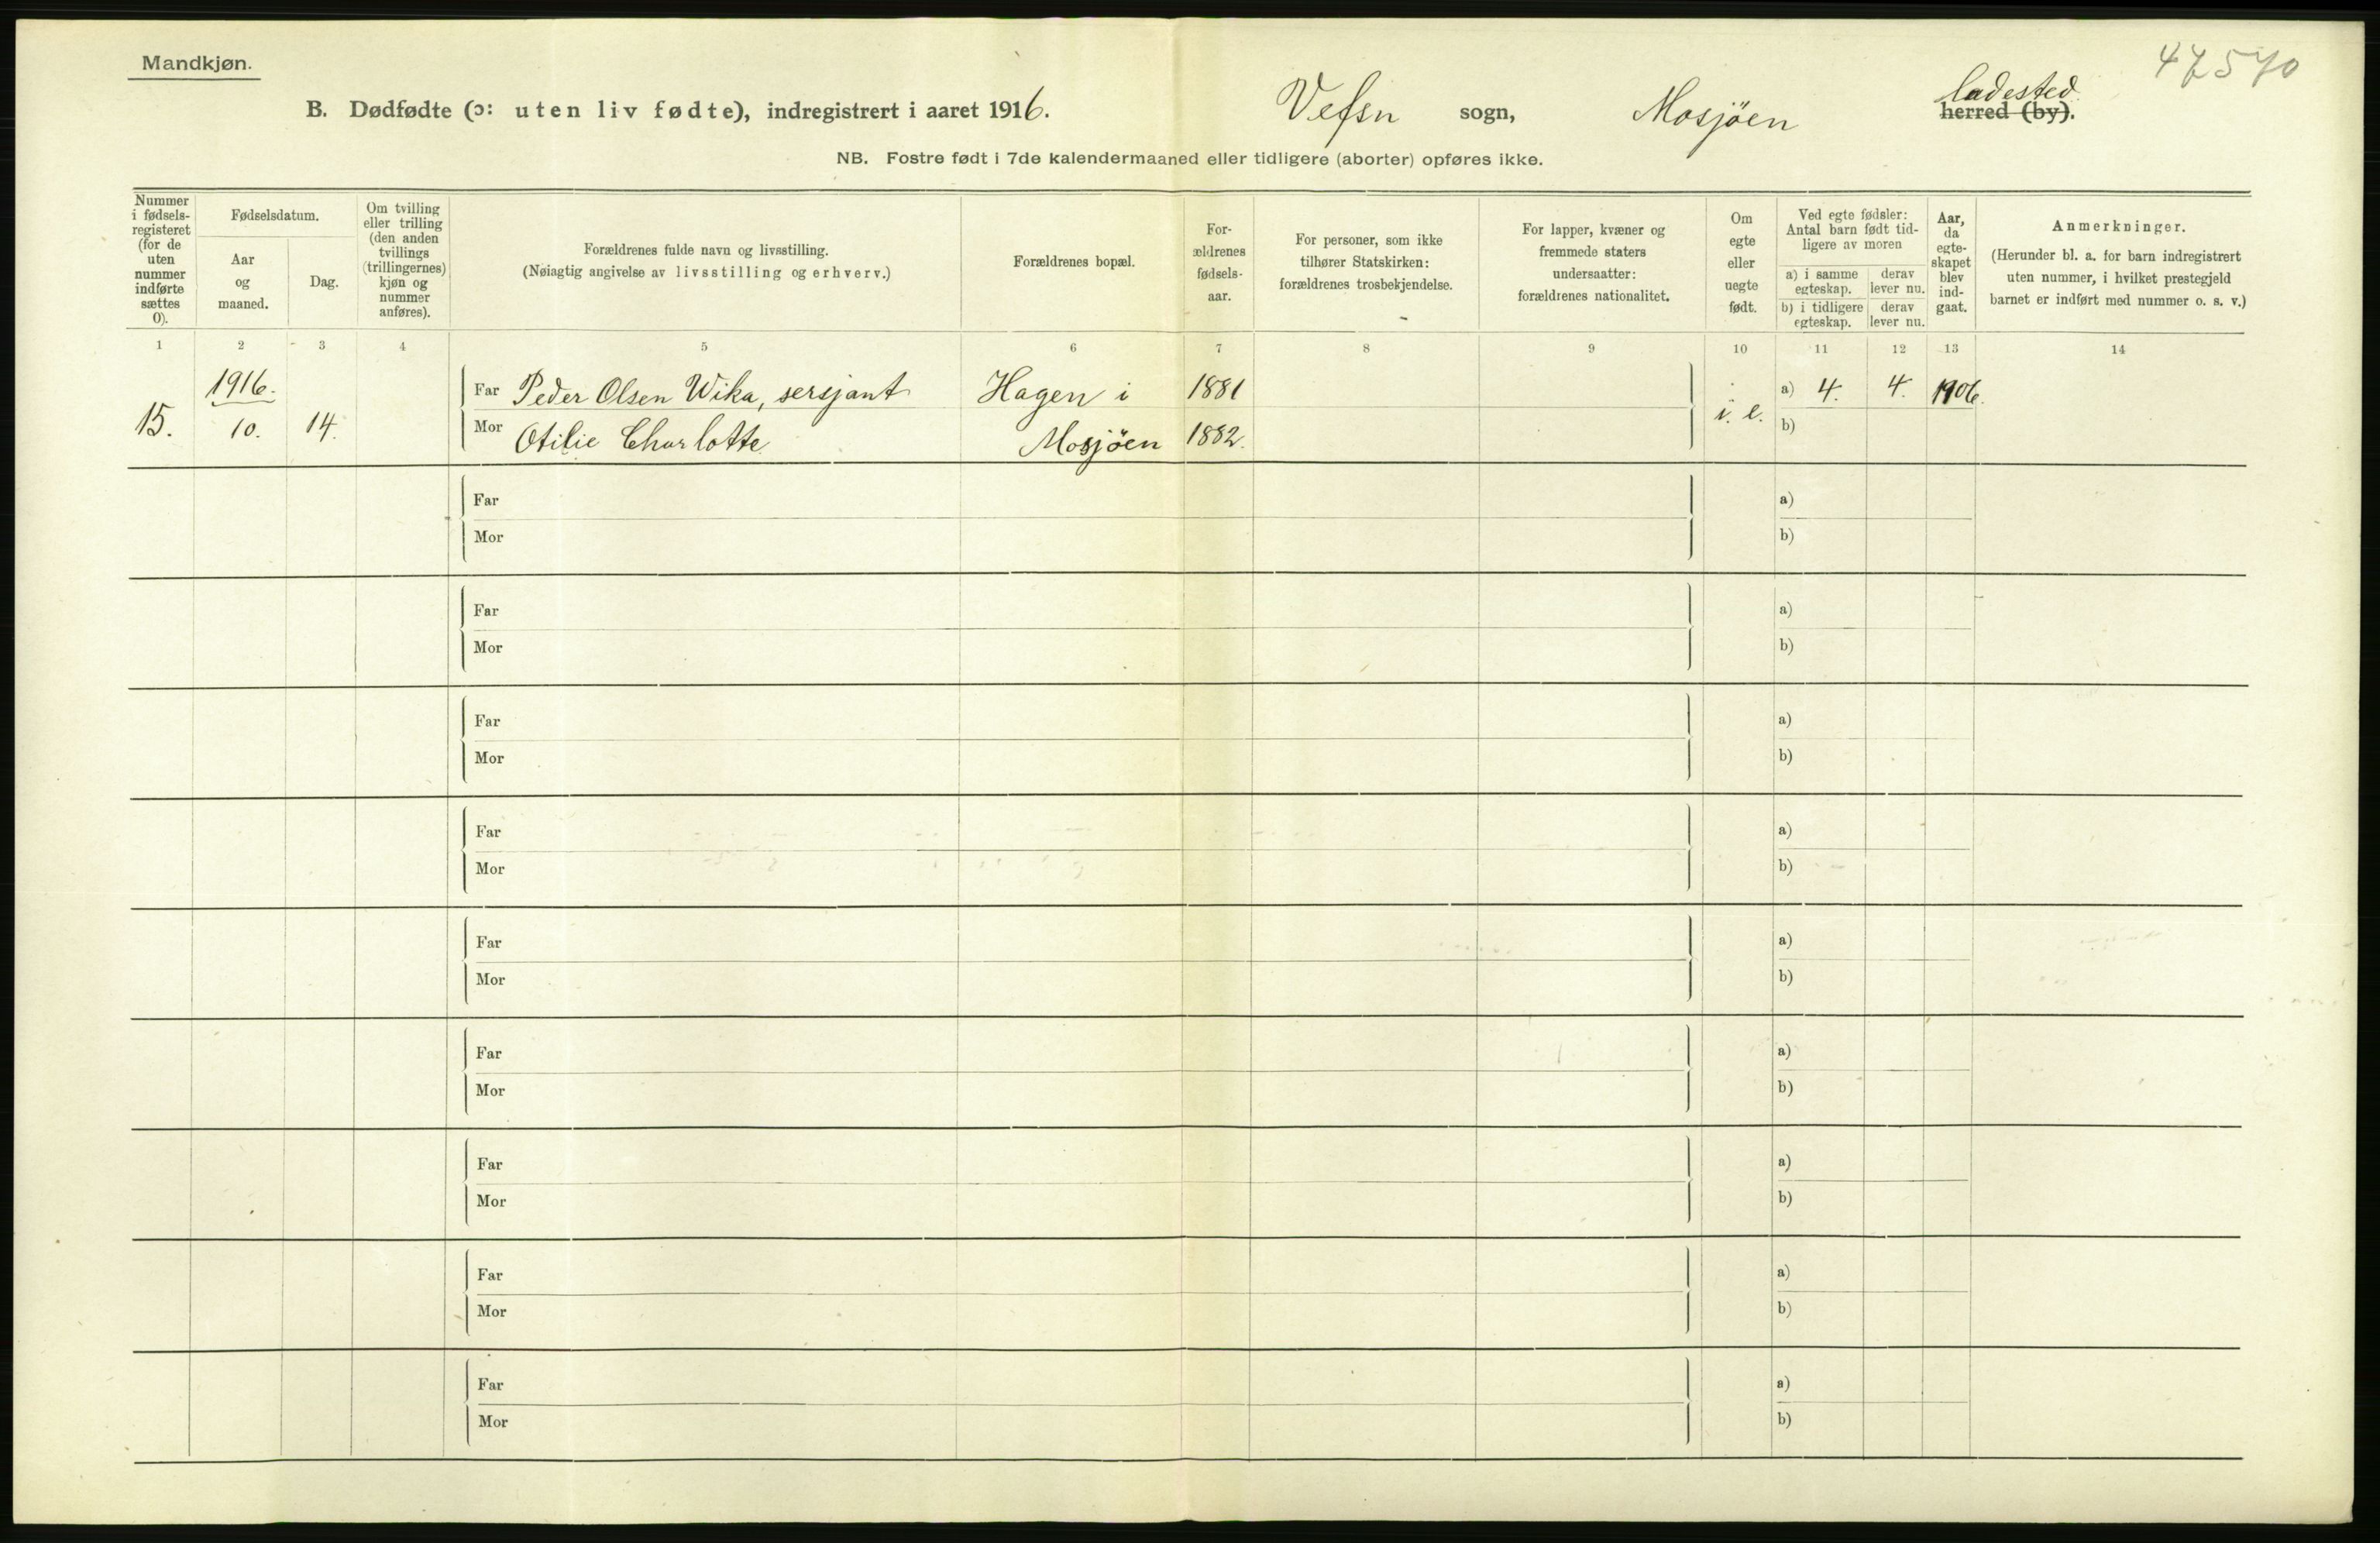 Mandkjøn.
B. Dødfødte (ɔ: uten liv fødte), indregistrert i aaret 1916. Vefsn sogn, Mosjöen ladested. herred (by).
NB. Fostre født i 7de kalendermaaned eller tidligere (aborter) opføres ikke.
Nummer
i fødsels-
registeret
(for de
uten
nummer
indførte
sættes
0).
Fødselsdatum.
Aar
og
maaned.
Dag.
Om tvilling
eller trilling
(den anden
tvillings
(trillingernes)
kjøn og
nummer
anføres).
Forældrenes fulde navn og livsstilling.
(Nøiagtig angivelse av livsstilling og erhverv.)
Forældrenes bopæl.
For-
ældrenes
fødsels-
aar.
For personer, som ikke
tilhører Statskirken:
forældrenes trosbekjendelse.
For lapper, kvæner og
fremmede staters
undersaatter:
forældrenes nationalitet.
Om
egte
eller
uegte
født.
Ved egte fødsler:
Antal barn født tid-
ligere av moren
a) i samme
egteskap.
derav
lever nu.
b) i tidligere
egteskap.
derav
lever nu.
Aar,
da
egte-
skapet
blev
ind-
gaat.
Anmerkninger.
(Herunder bl. a. for barn indregistrert
uten nummer, i hvilket prestegjeld
barnet er indført med nummer o. s. v.)
1 2 3 4 5 6 7 8 9 10 11 12 13 14
1916. Far Peder Olsen Wika, sersjant Hagen i 1881 a) 4. 4. 1906.
15. 10. 14. Mor Otilie Charlotte Mosjöen 1882. i. e. b)
Far a)
Mor b)
Far a)
Mor b)
Far a)
Mor b)
Far a)
Mor b)
Far a)
Mor b)
Far a)
Mor b)
Far a)
Mor b)
Far a)
Mor b)
Far a)
Mor b)